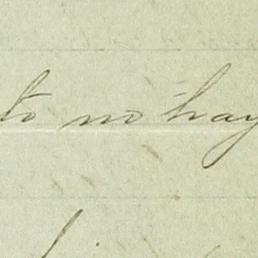 to no hay